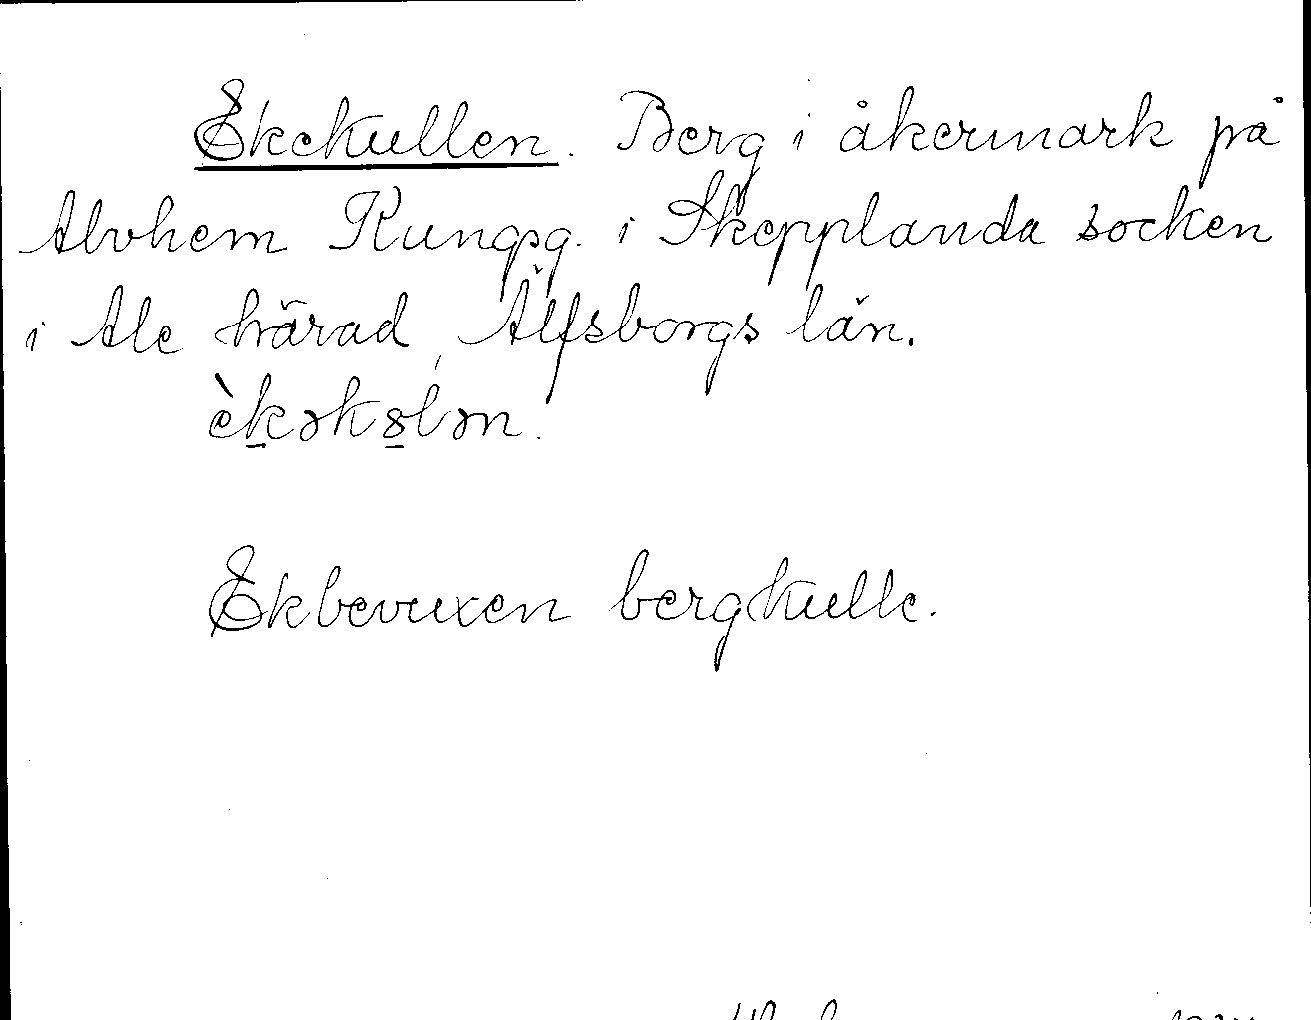 Ekekullen. Berg i åkermark på
Alvhem Kungsg. i Skepplanda socken
i Ale härad, Älfsborgs län.
èk̲əko̲lən.
Ekbevuxen bergkulle.